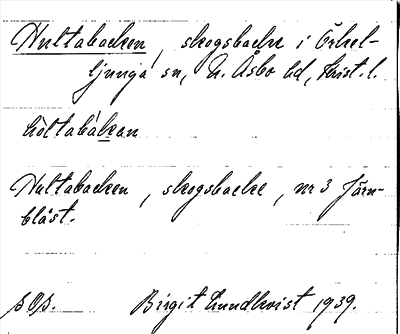 Hultabacken, skogsbacke i Örkel-
ljunga sn, N. Åsbo hd, Krist. l.
hòltabákan
Hultabacken, skogsbacke, nr 3 Järn-
blåst.
Birgit Lundkvist 1939.